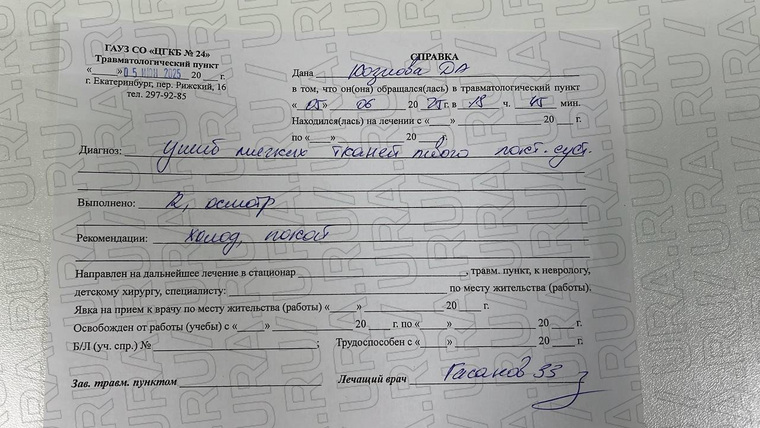 ГАУЗ СО «ЦГКБ № 24»
Травматологический пункт
«____» 05 ИЮН 2025 20___ г.
г. Екатеринбург, пер. Рижский, 16
тел. 297-92-85
СПРАВКА
Дана ДА
в том, что он(она) обращался(лась) в травматологический пункт
« 05 » 06 20 25 г. в ч. 45 мин.
Находился(лась) на лечении с «____» ____ 20 ___ г.
по «____» ____ 20 ___ г.
Диагноз: Ушиб мягких тканей левого локт. суст.
Выполнено: R, осмотр
Рекомендации: Холод, покой
Направлен на дальнейшее лечение в стационар ____, травм. пункт, к неврологу,
детскому хирургу, специалисту: ____ по месту жительства (работы).
Явка на прием к врачу по месту жительства (работы) «____» ____ 20 ___ г.
Освобожден от работы (учебы) с «____» ____ 20 ___ г. по «____» ____ 20 ___ г.
Б/Л (уч. спр.) № ____; Трудоспособен с «____» ____ 20 ___ г.
Зав. травм. пунктом ____ Лечащий врач Гасанов ЗЗ
URA.RU